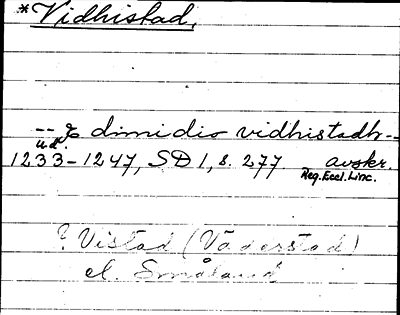 *Vidhistad,
-- E dimidio vidhistadh --
u.d.
1233-1247, SD 1, s. 277. avskr.
Reg. Eccl. Linc.
? Vistad (Väderstad)
el. Småland